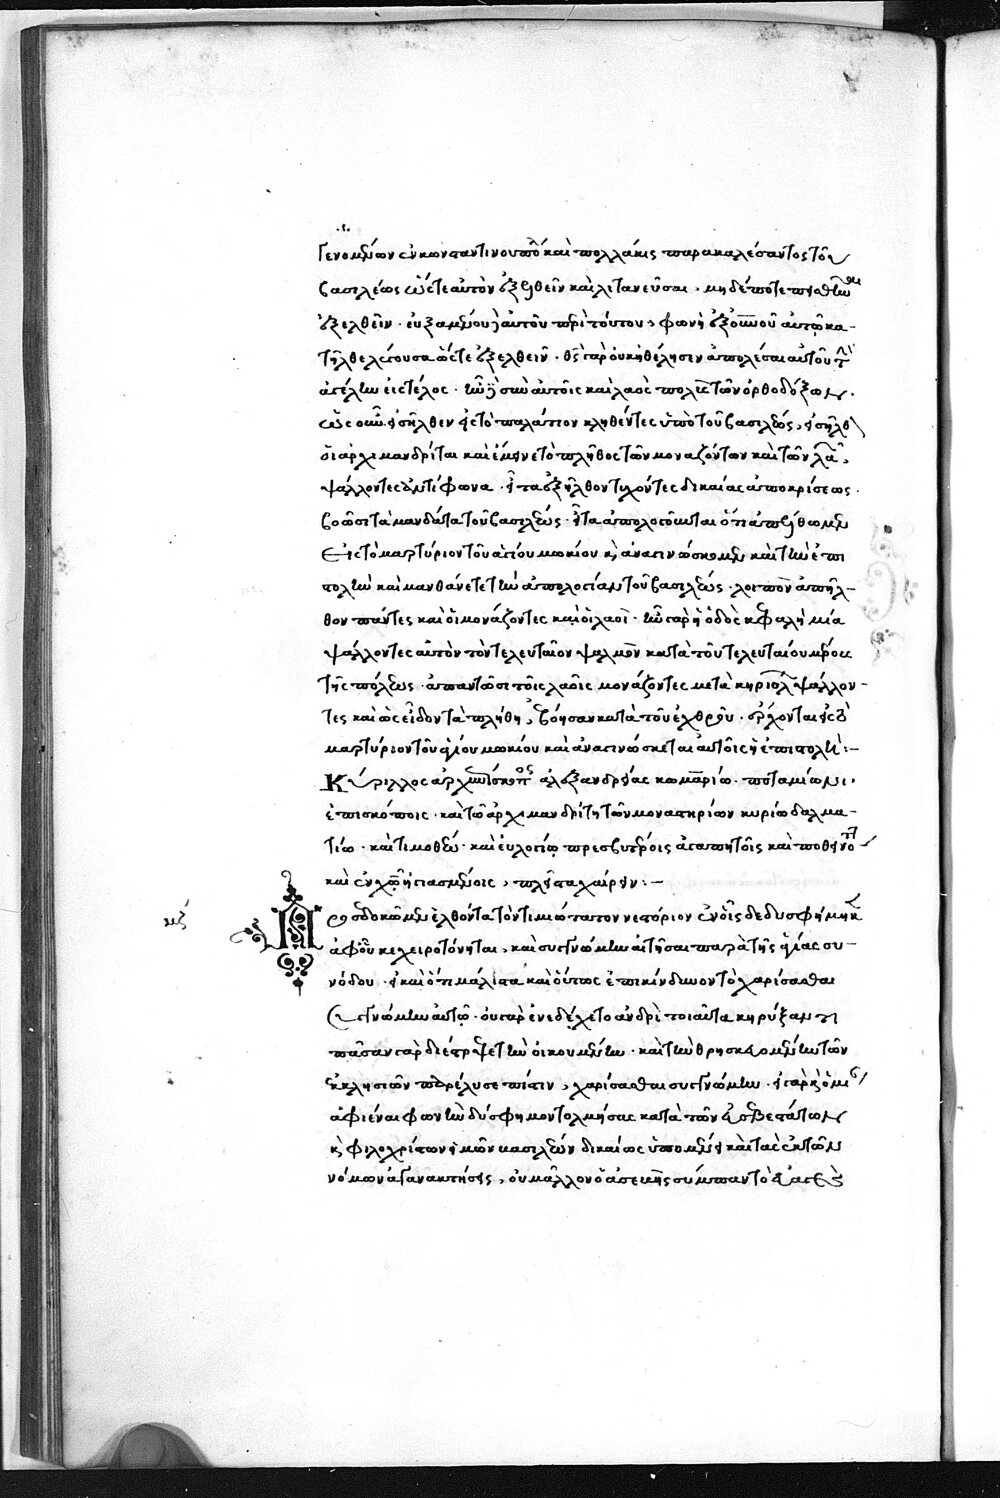 γενομένων ἐν κωνσταντινουπό καὶ πολλάκις παρακαλέσαντος τοῦ
βασιλέως ὥστε αὐτὸν ἐξελθεῖν καὶ λιτανεῦσαι · μηδέποτε πεισθῆναι
ἐξελθεῖν · εὐξαμένου δὲ αὐτοῦ περὶ τούτου, φωνὴ ἐξ οὐνοῦ αὐτῷ κα-
τῆλθε λέγουσα ὥστε ἐξελθεῖν · θς γὰρ οὐκ ἠθέλησεν ἀπολέσαι αὐτοῦ τὴν
ἀγέλην εἰς τέλος · ἦν δὲ σὺν αὐτοῖς καὶ λαὸς πολὺς τῶν ὀρθοδόξων ·
ὡς οὖν εἰσῆλθεν εἰς τὸ παλάτιον κληθέντες ὑπὸ τοῦ βασιλέως, εἰσῆλθον
οἱ ἀρχιμανδρίται καὶ ἔμεινε τὸ πλῆθος τῶν μοναζόντων καὶ τῶν λαϊ,
ψάλλοντες ἀντίφωνα · εἶτα ἐξῆλθον τυχόντες δικαίας ἀποκρίσεως ·
βοῶσι τὰ μανδάτα τοῦ βασιλέως · εἶτα ἀπολογοῦνται ὅτι ἀπέλθωμεν
εἰς τὸ μαρτύριον τοῦ ἁγίου μωκίου κ ἀναγινώσκομεν καὶ τὴν ἐπι
τολὴν καὶ μανθάνετε τὴν ἀπολογίαν τοῦ βασιλέως · λοιπὸν ἀπῆλ-
θον πάντες καὶ οἱ μονάζοντες καὶ οἱ λαοὶ · ἦν γὰρ ἡ ὁδὸς κεφαλὴ μία
ψάλλοντες αὐτὸν τὸν τελευταῖον ψαλμὸν κατὰ τοῦ τελευταίου μέρους
τῆς πόλεως · ἀπαντῶσι τοῖς λαοῖς μονάζοντες μετὰ κηριολ ψάλλον-
τες καὶ ὡς εἶδον τὰ πλήθη, ἐβόησαν κατὰ τοῦ ἐχθροῦ · ἔρχονται εἰς τὸ
μαρτύριον τοῦ ἁγίου μωκίου καὶ ἀναγινώσκεται αὐτοῖς ἡ ἐπιστολή :-
Κύριλλος ἀρχιεπίσκοπος ἀλεξανδρείας κωμαρίῳ · ποταμίωνι ·
ἐπισκόποις · καὶ τῷ ἀρχιμανδρίτῃ τῶν μοναστηρίων κυρίῳ δαλμα-
τίῳ · καὶ τιμοθέῳ · καὶ εὐλογίῳ πρεσβυτέροις ἀγαπητοῖς καὶ ποθεινοτ
καὶ ἐν χω ἡγιασμένοις, πλεῖστα χαίρειν :-
κξ
Προσδοκῶμεν ἐλθόντα τὸν τιμιώτατον νεστόριον ἐν οἷς δεδυσφήμηκεν
ἀφ' οὗ κεχειροτόνηται, καὶ συγγνώμην αἰτῆσαι παρὰ τῆς ἁγίας συ-
νόδου · εἰ καὶ ὅτι μάλιστα καὶ οὕτως ἐπικίνδυνον τὸ χαρίσασθαι
συγγνώμην αὐτῷ · οὐ γὰρ ἐνεδέχετο ἀνδρὶ τοιαῦτα κηρύξαντι
πᾶσαν γὰρ διέστρεψε τὴν οἰκουμένην · καὶ τὴν θρησκευομένην τῶν
ἐκκλησιῶν παρέλυσε πίστιν, χαρίσασθαι συγγνώμην · εἰ γὰρ κ ὁ μίαν
ἀφιέναι φωνὴν δύσφημον τολμήσας κατὰ τῶν εὐσεβεστάτων
κ φιλοχρίστων ἡμῶν βασιλέων δικαίως ὑπομένει καὶ τὰς ἐκ τῶν
νόμων ἀγανακτήσεις, οὐ μᾶλλον ὁ ἀσεβὴς σύμπαν τὸ εὐαγὲς